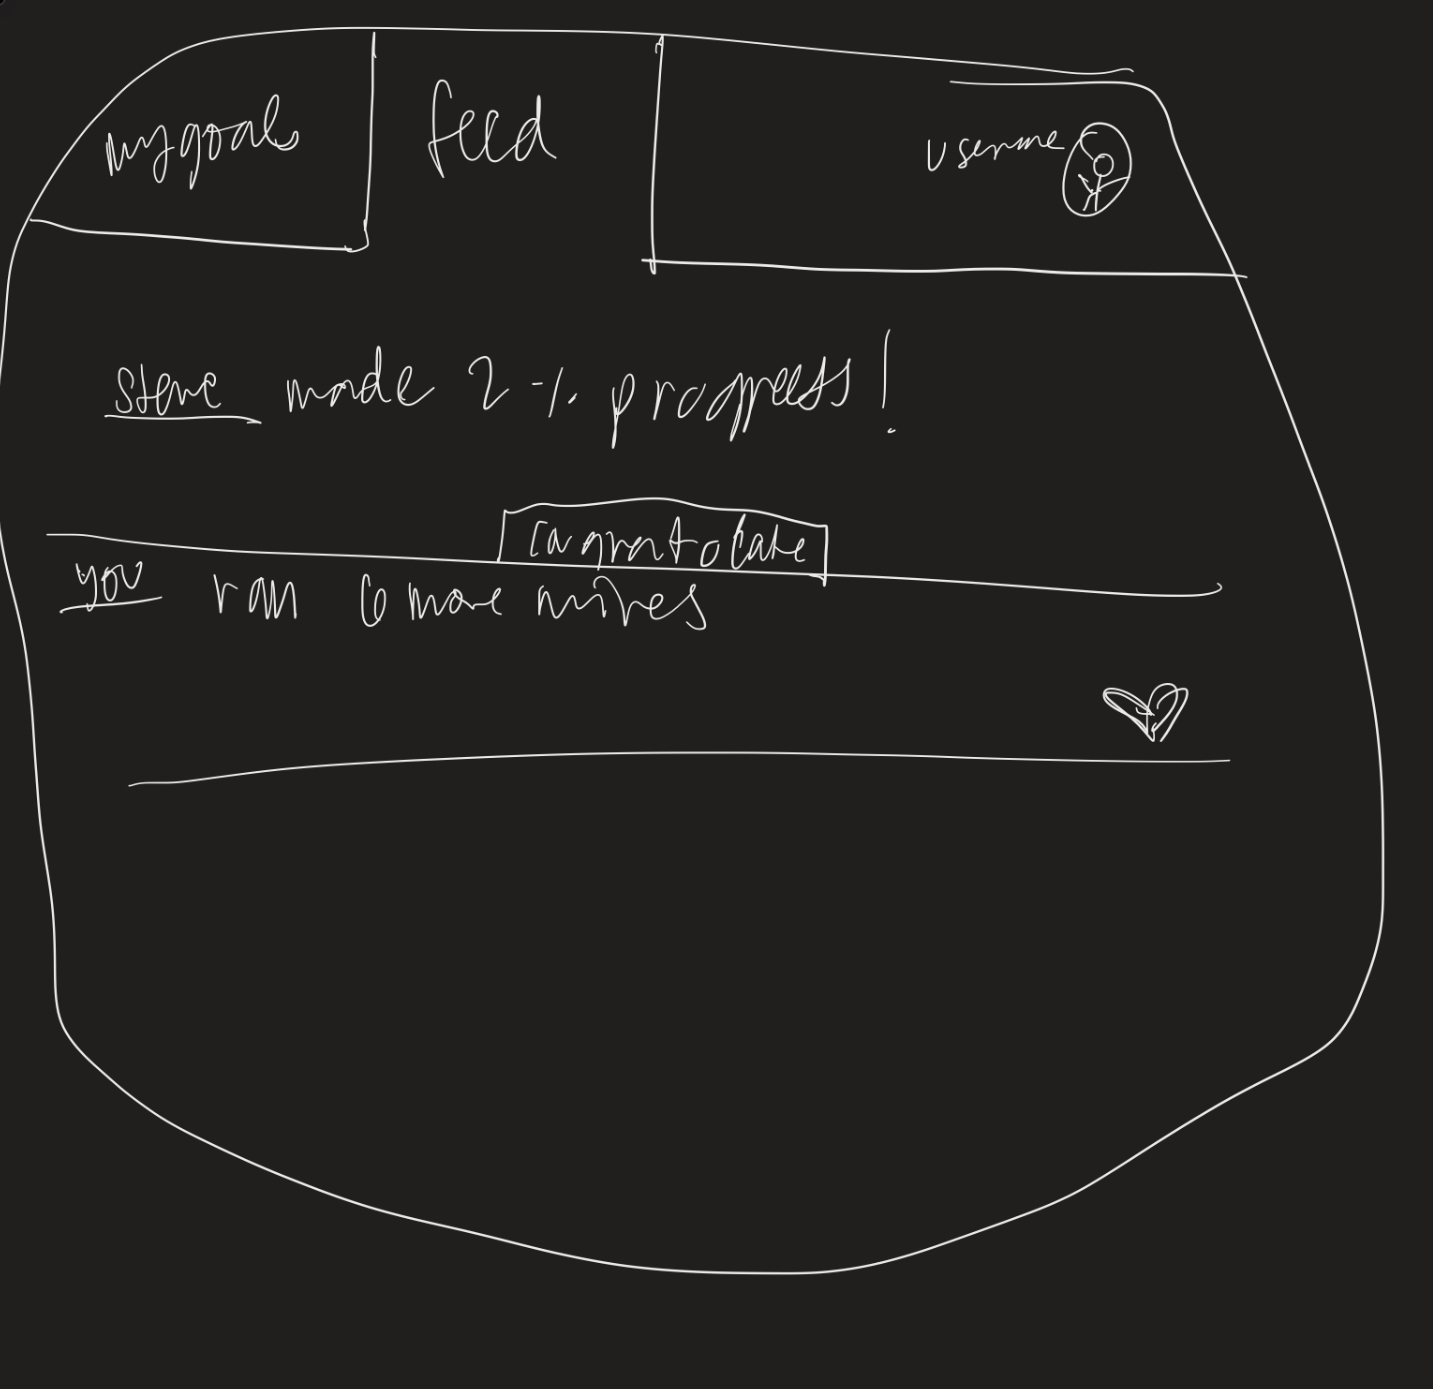 my goals feed username
steve made 2% progress!
congratulate
you ran 6 more miles